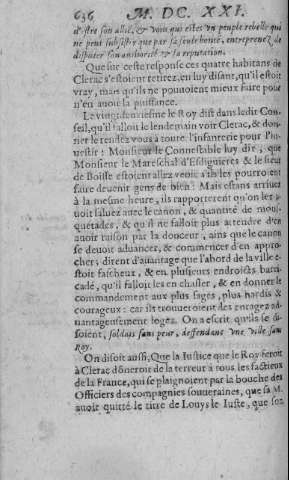 636 M. DC. XXI.
d'estre son allié, & voir qui estes vn peuple rebelle qui
ne peut subsister que par sa seule bonté, entreprenez de
disputer son authorité & sa reputation.
Que sur ceste response ces quatre habitans de
Clerac s'estoient retirez, en luy disant, qu'il estoit
vray, mais qu'ils ne pouuoient mieux faire pour
n'en auoir la puissance.
Le vingdeuxiesme le Roy dist dans ledit Con-
seil, qu'il falloit le lendemain voir Clerac, & don-
ner le rendez vous à toute l'infanterie pour l'in-
uestir: Monsieur le Connestable luy dit, que
Monsieur le Mareschal d'Esdiguieres & le sieur
de Boisse estoient allez venir à ils les pourroient
faire deuenir gens de bien: Mais estans arriuez
à la mesme heure, ils rapporterent qu'on les a-
uoit saluez auec le canon, & quantité de mous-
quetades, & qu'il ne falloit plus attendre d'en
auoir raison par la douceur, ains que le canon
se deuoit aduancer, & commencer d'en appro-
cher; dirent d'auantage que l'abord de la ville e-
stoit fascheux, & en plusieurs endroicts barri-
cadé, qu'il falloit les en chasser, & en donner le
commandement aux plus sages, plus hardis &
courageux: car ils trouueroient des enragez ad-
uantageusement logez. On a escrit qu'ils se di-
soient, soldats sans peur, deffendans vne ville sans
Roy.
On disoit aussi, Que la Iustice que le Roy feroit
à Clerac dõneroit de la terreur à tous les factieux
de la France, qui se plaignoient par la bouche des
Officiers des compagnies souueraines, que sa M.
auoit quitté le titre de Louys le Iuste, que son